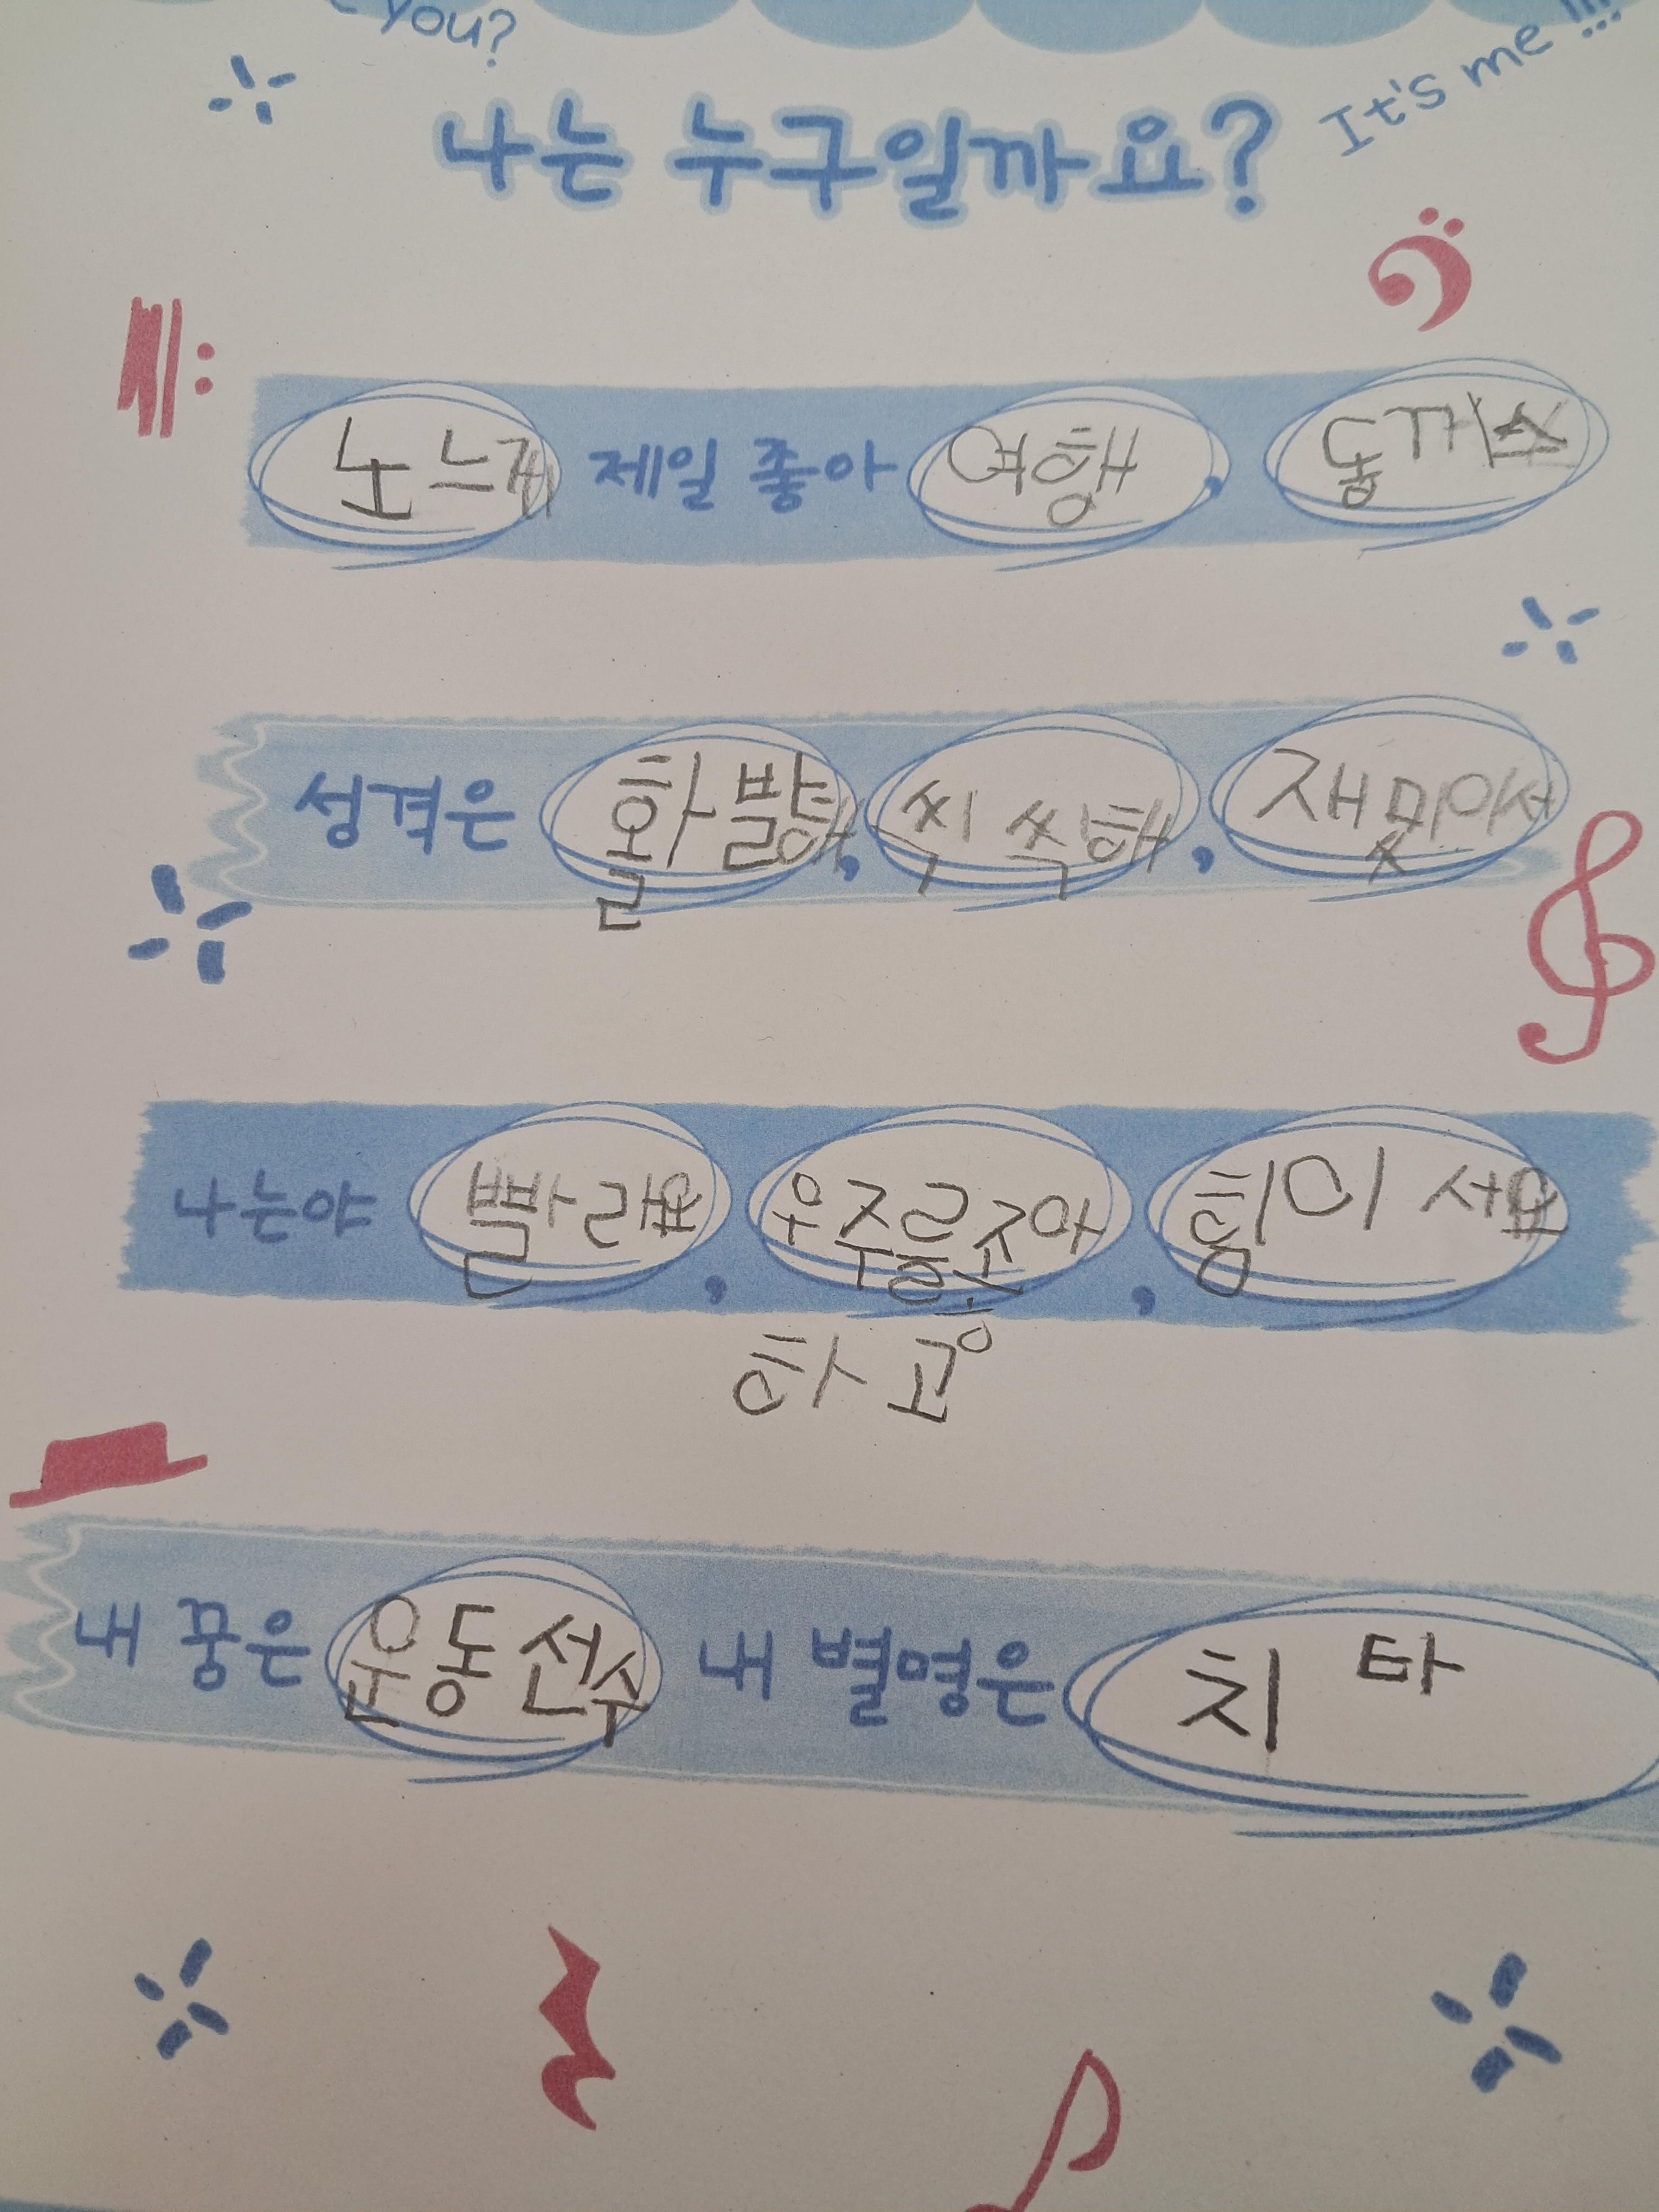 you?
It's me !!!
나는 누구일까요?
노느게 제일 좋아 여행, 돚까스
성격은 활발해, 씩씩해, 재밌어서
나는야 빨라요, 우주를 좋아, 힘이 세요
하고
내 꿈은 운동선수 내 별명은 치타